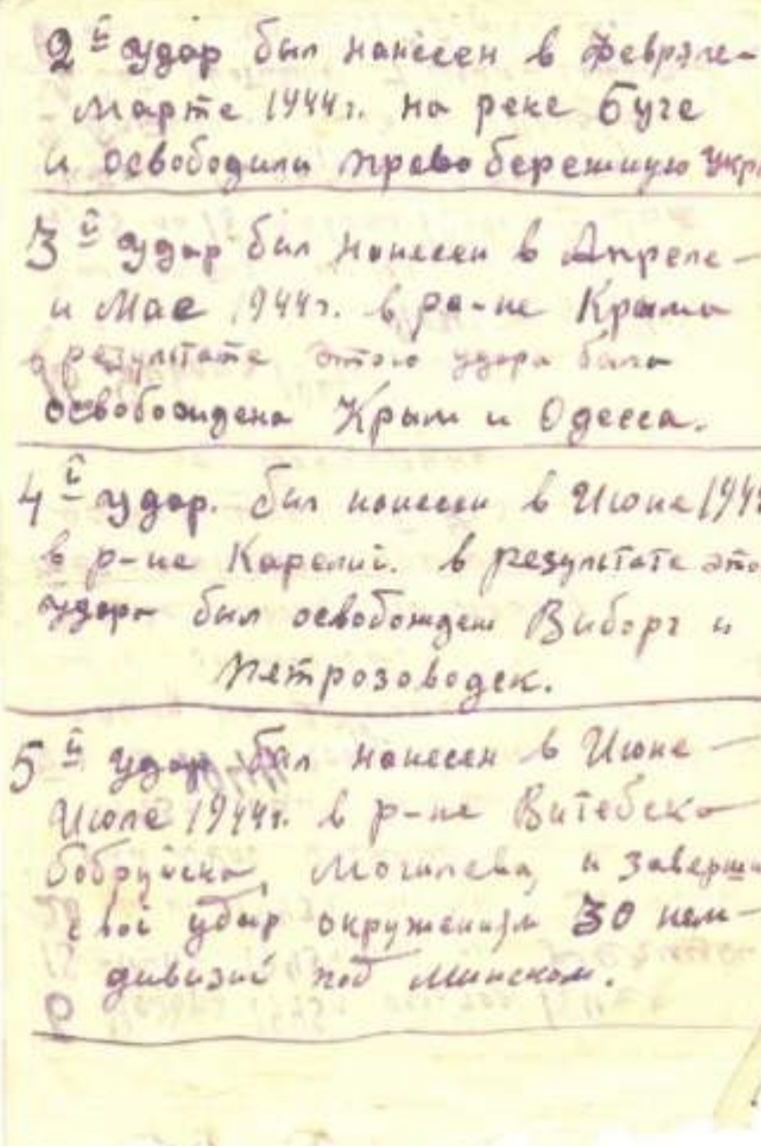 2й удар был нанесен в Феврале-
Марте 1944г. на реке Буге
и освободили правобережную Укр
3й удар был нанесен в Апреле-
и Мае 1944г. в ра-не Крыма
в результате этого удара была
освобождена Крым и Одесса.
4й удар. был нанесен в Июне 194
в р-не Карелий. в результате это
удара был освобожден Виборг и
Петрозоводск.
5й удар был нанесен в Июне-
Июле 1944г. в р-не Витебска
бобруйска, Могилева, и заверши
свой удар окружениям 30 нем-
дивизий под Минском.